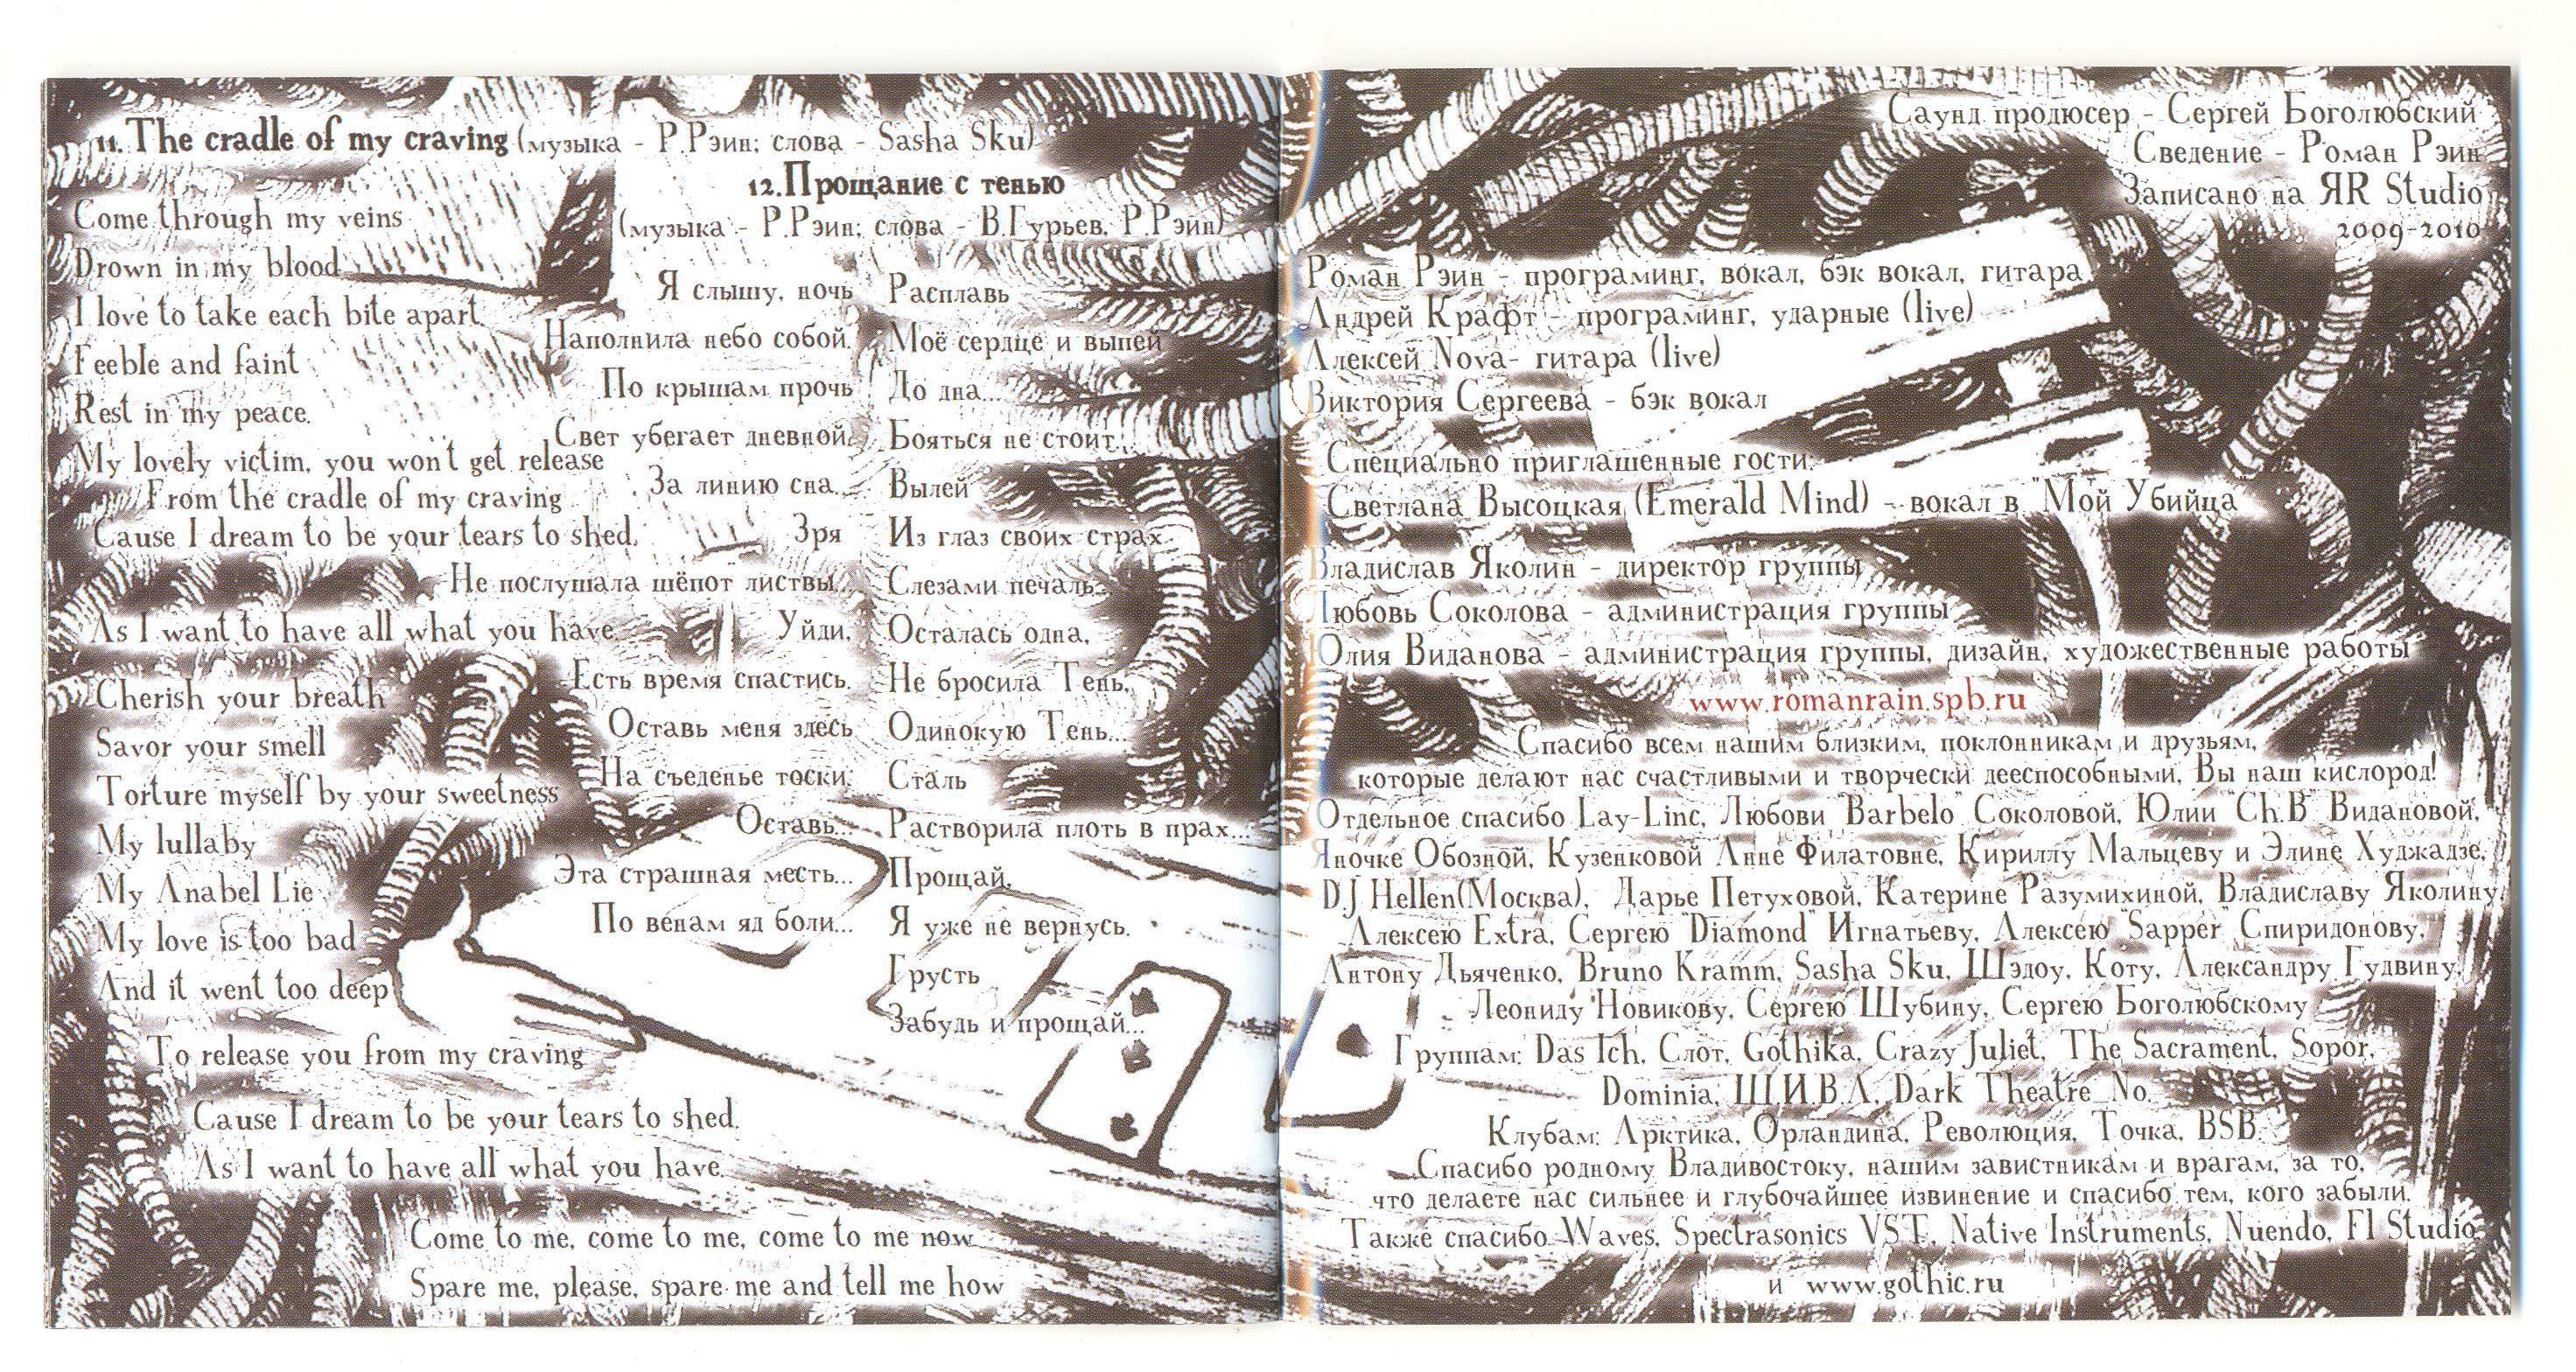 11. The cradle of my craving (музыка - Р.Рэин; слова - Sasha Sku)
Come through my veins
Drown in my blood
I love to take each bite apart
Feeble and faint
Rest in my peace.
My lovely victim, you won't get release
From the cradle of my craving
Cause I dream to be your tears to shed,
As I want to have all what you have.
Cherish your breath
Savor your smell
Torture myself by your sweetness
My lullaby
My Anabel Lie
My love is too bad
And it went too deep
To release you from my craving
Cause I dream to be your tears to shed,
As I want to have all what you have.
Come to me, come to me, come to me now
Spare me, please, spare me and tell me how
12.Прощание с тенью
(музыка - Р.Рэин; слова - В.Гурьев, Р.Рэин)
Я слышу, ночь
Наполнила небо собой.
По крышам прочь
Свет убегает дневной,
За линию сна...
Зря
Не послушала шёпот листвы...
Уйди,
Есть время спастись.
Оставь меня здесь
На съеденье тоски.
Оставь...
Эта страшная месть...
По венам яд боли...
Расплавь
Моё сердце и выпей
До дна...
Бояться не стоит...
Вылей
Из глаз своих страх
Слезами печаль...
Осталась одна,
Не бросила Тень,
Одинокую Тень...
Сталь
Растворила плоть в прах...
Прощай,
Я уже не вернусь.
Грусть
Забудь и прощай...
Саунд продюсер - Сергей Боголюбский
Сведение - Роман Рэин
Записано на ЯR Studio
2009-2010
Роман Рэин - програминг, вокал, бэк вокал, гитара
Андрей Крафт - програминг, ударные (live)
Алексей Nova- гитара (live)
Виктория Сергеева - бэк вокал
Специально приглашенные гости:
Светлана Высоцкая (Emerald Mind) - вокал в "Мой Убийца"
Владислав Яколин - директор группы
Любовь Соколова - администрация группы
Юлия Виданова - администрация группы, дизайн, художественные работы
www.romanrain.spb.ru
Спасибо всем нашим близким, поклонникам и друзьям,
которые делают нас счастливыми и творчески дееспособными, Вы наш кислород!
Отдельное спасибо Lay-Linc, Любови "Barbelo" Соколовой, Юлии "Ch.B" Видановой,
Яночке Обозной, Кузенковой Анне Филатовне, Кириллу Мальцеву и Элине Худжадзе,
DJ Hellen(Москва), Дарье Петуховой, Катерине Разумихиной, Владиславу Яколину,
Алексею Extra, Сергею "Diamond" Игнатьеву, Алексею "Sapper" Спиридонову,
Антону Дьяченко, Bruno Kramm, Sasha Sku, Шэдоу, Коту, Александру Гудвину,
Леониду Новикову, Сергею Шубину, Сергею Боголюбскому
Группам: Das Ich, Слот, Gothika, Crazy Juliet, The Sacrament, Sopor,
Dominia, Ш.И.В.А, Dark Theatre No.
Клубам: Арктика, Орландина, Революция, Точка, BSB.
Спасибо родному Владивостоку, нашим завистникам и врагам, за то,
что делаете нас сильнее и глубочайшее извинение и спасибо тем, кого забыли.
Также спасибо Waves, Spectrasonics VST, Native Instruments, Nuendo, Fl Studio
и www.gothic.ru